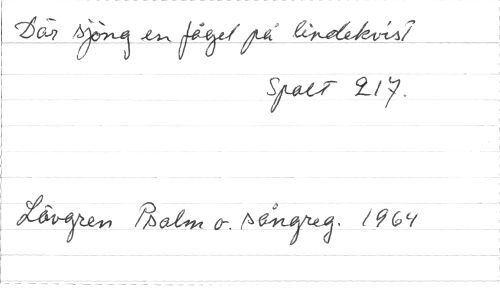 Där sjöng en fågel på lindekvist
Spalt 217.
Lövgren Psalm o. sångreg. 1964